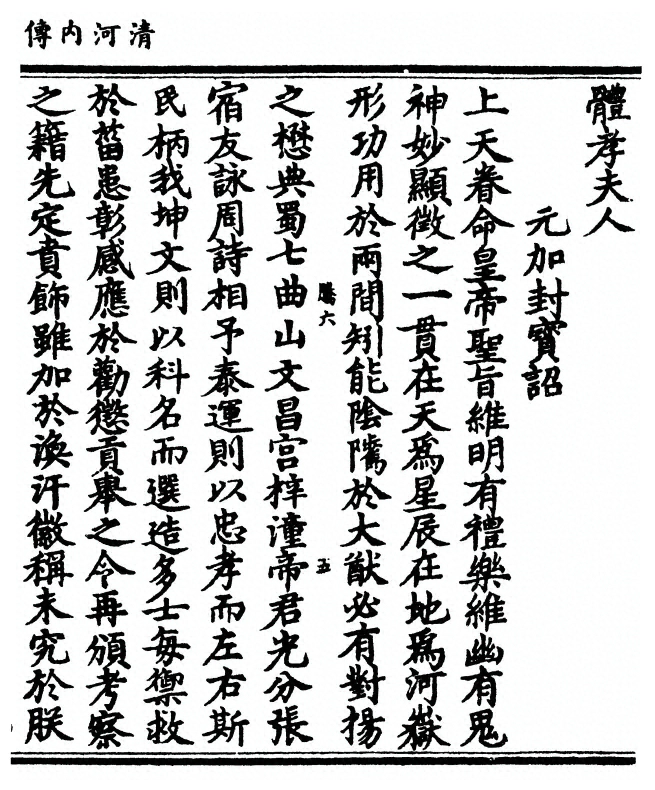 清河內傳
體孝夫人
元加封寶詔
上天眷命皇帝聖旨維明有禮樂維幽有鬼
神妙顯徵之一貫在天爲星辰在地爲河嶽
形功用於兩間矧能陰隲於大猷必有對揚
之懋典蜀七曲山文昌宮梓潼帝君光分張
騰六
五
宿友詠周詩相予泰運則以忠孝而左右斯
民柄我坤文則以科名而選造多士每禦救
於菑患彰感應於勸懲貢舉之令再頒考察
之籍先定賁飾雖加於渙汗徽稱未究於朕